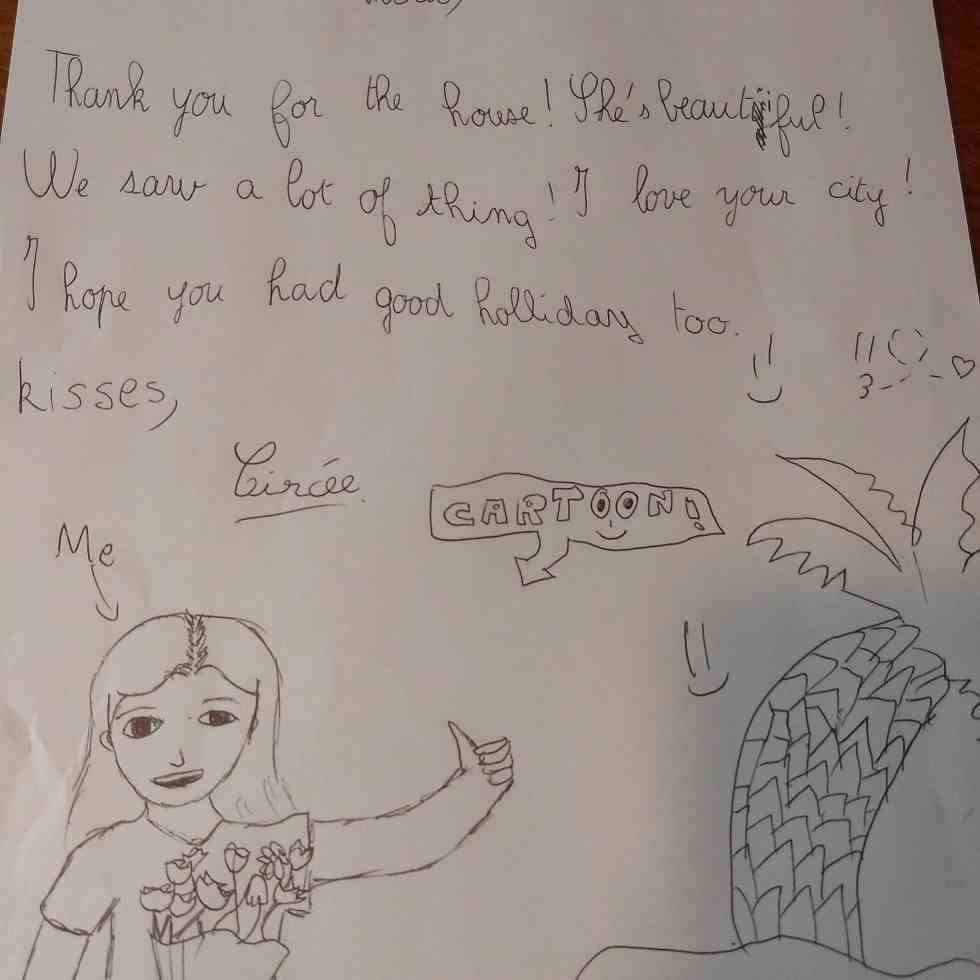 Thank you for the house! She's beautiful!
We saw a lot of thing! I love your city!
I hope you had good holliday too.
kisses,
Circée.
CARTOON!
Me